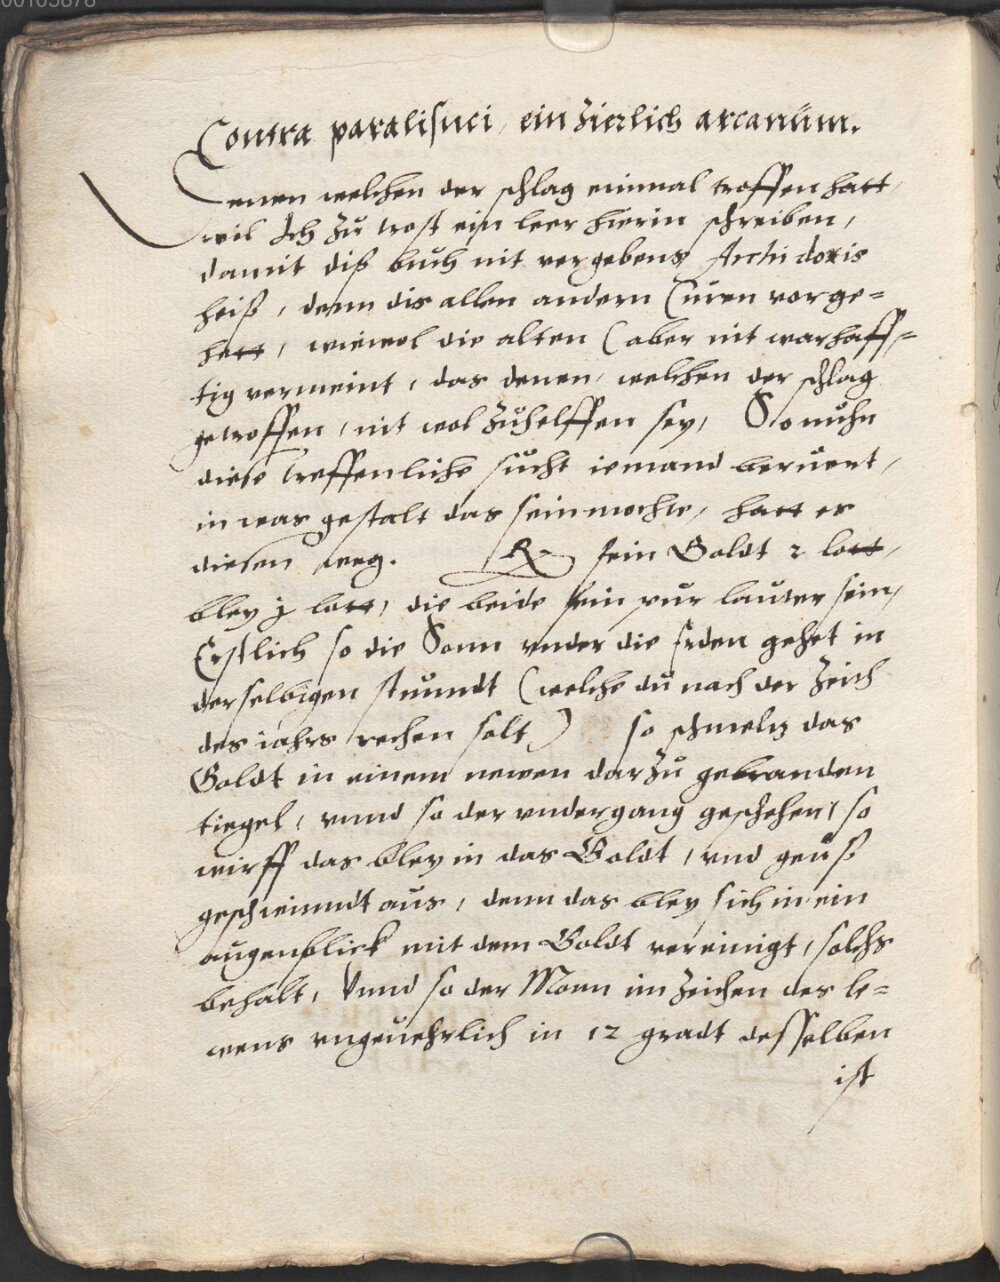 00105878
Contra paralisnei, ein Zierlich arcanům.
Denen welchen der schlag einmal troffen hatt,
wil Ich zů trost ein leer hierin schreiben,
damit diß bůch nit vergebens Archidoxis
heiß, denn dis allen andern Cůren vorge=
hett, wiewol die alten (aber nit warhaff=
tig vermeint, das denen, welchen der schlag
getroffen, nit wol zůhelffen sey, So nůhn
diese treffenliche sůcht iemand berůert,
in was gestalt das sein mochte, hatt er
diesen weg. ℞ fein Goldt 2 lott,
bley j lott, die beide fein pur lauter sein,
Erstlich so die Sonn vnder die erden gehet in
derselbigen stůundt (welche dů nach der Zeich
des iahrs rechen solt) so schmeltz das
Goldt in einem newen darzů gebranden
tiegel, vnnd so der vndergang geschehen, so
wirff das bley in das Goldt, vnd geůß
geschwinndt aůs, denn das bley sich in ein
augenblick mit dem Goldt vereinigt, solchs
behalt, Vnnd so der Monn im Zeichen des le=
wens vngeuehrlich in 12 gradt desselben
ist